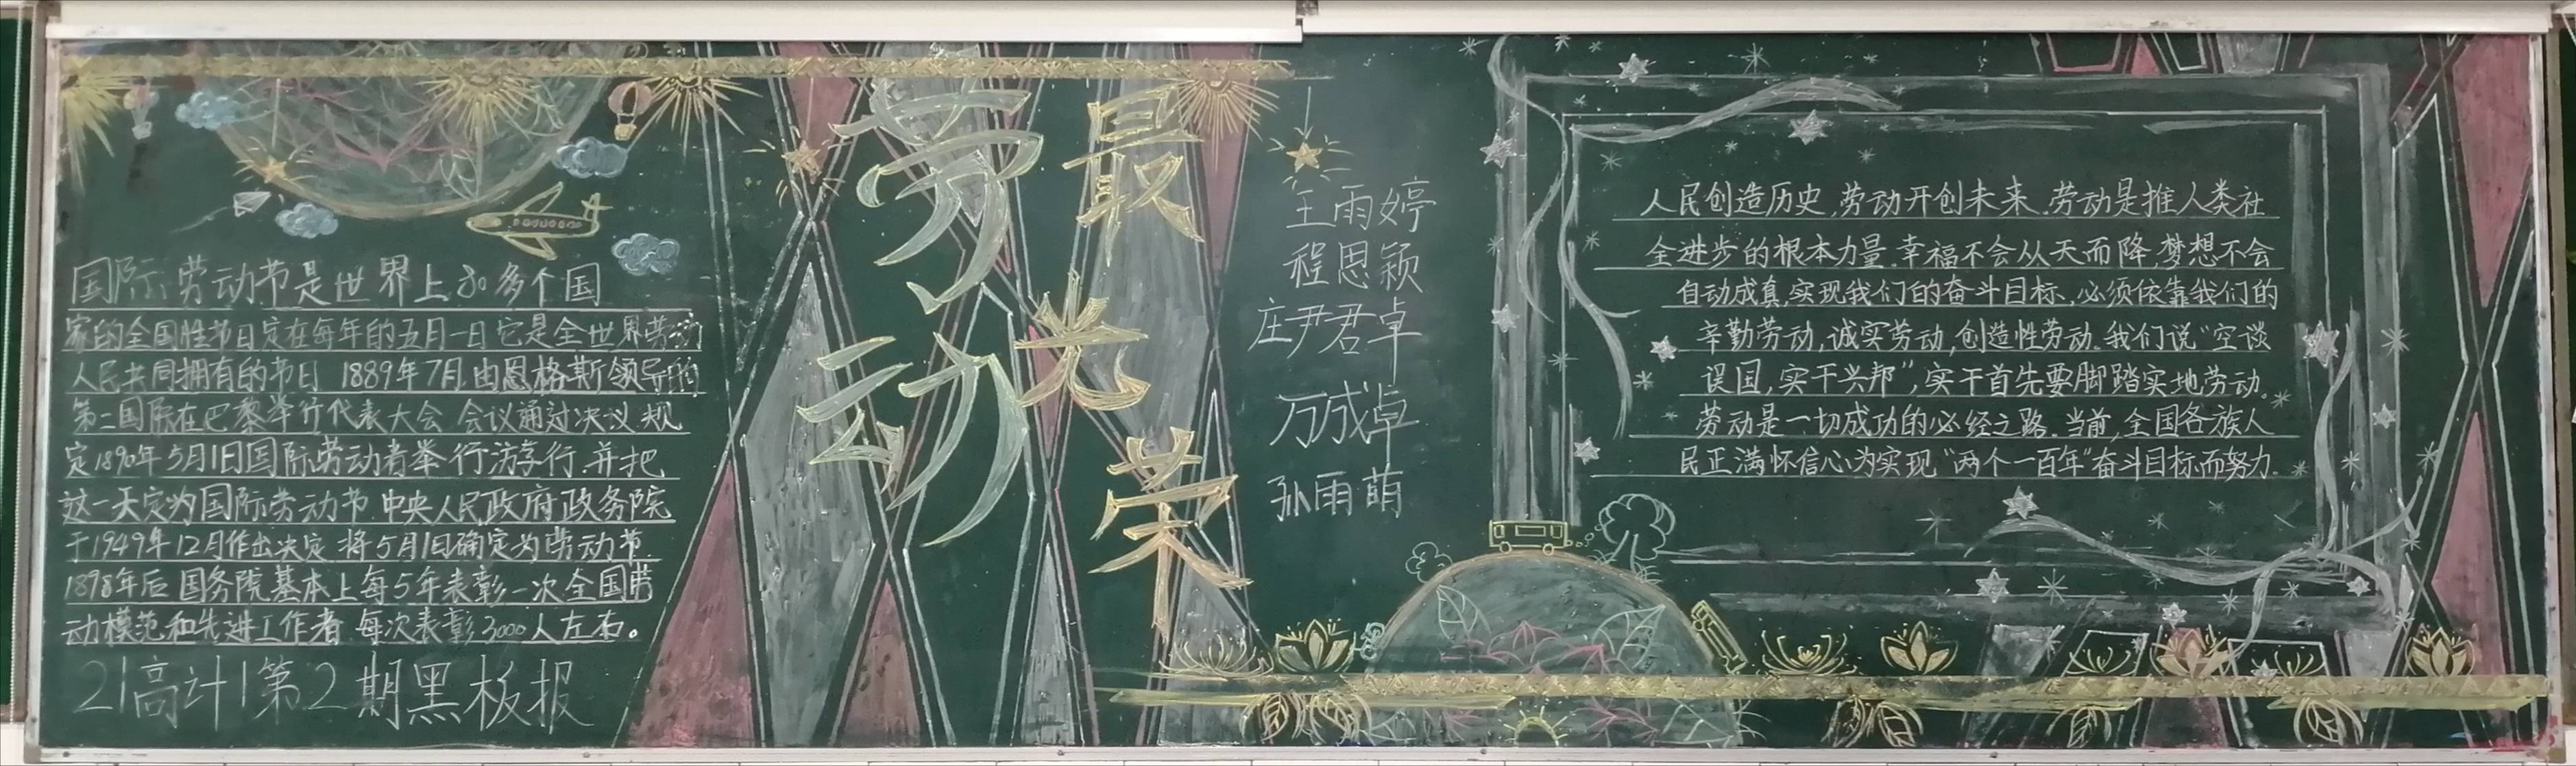 国际劳动节是世界上80多个国
家的全国性节日定在每年的五月一日它是全世界劳动
人民共同拥有的节日 1889年7月,由恩格斯领导的
第二国际在巴黎举行代表大会 会议通过决议 规
定1890年5月1日国际劳动者举行游行,并把
这一天定为国际劳动节.中央人民政府政务院
于1949年12月作出决定 将5月1日确定为劳动节.
1898年后 国务院基本上每5年表彰一次全国劳
动模范和先进工作者 每次表彰3000人左右。
21高计1第2期黑板报
劳动
最光荣
王雨婷
程思颖
庄尹君卓
万成卓
孙雨萌
人民创造历史,劳动开创未来.劳动是推人类社
全进步的根本力量.幸福不会从天而降,梦想不会
自动成真,实现我们的奋斗目标,必须依靠我们的
辛勤劳动,诚实劳动,创造性劳动.我们说“空谈
误国,实干兴邦”,实干首先要脚踏实地劳动。
劳动是一切成功的必经之路.当前,全国各族人
民正满怀信心为实现“两个一百年”奋斗目标而努力.